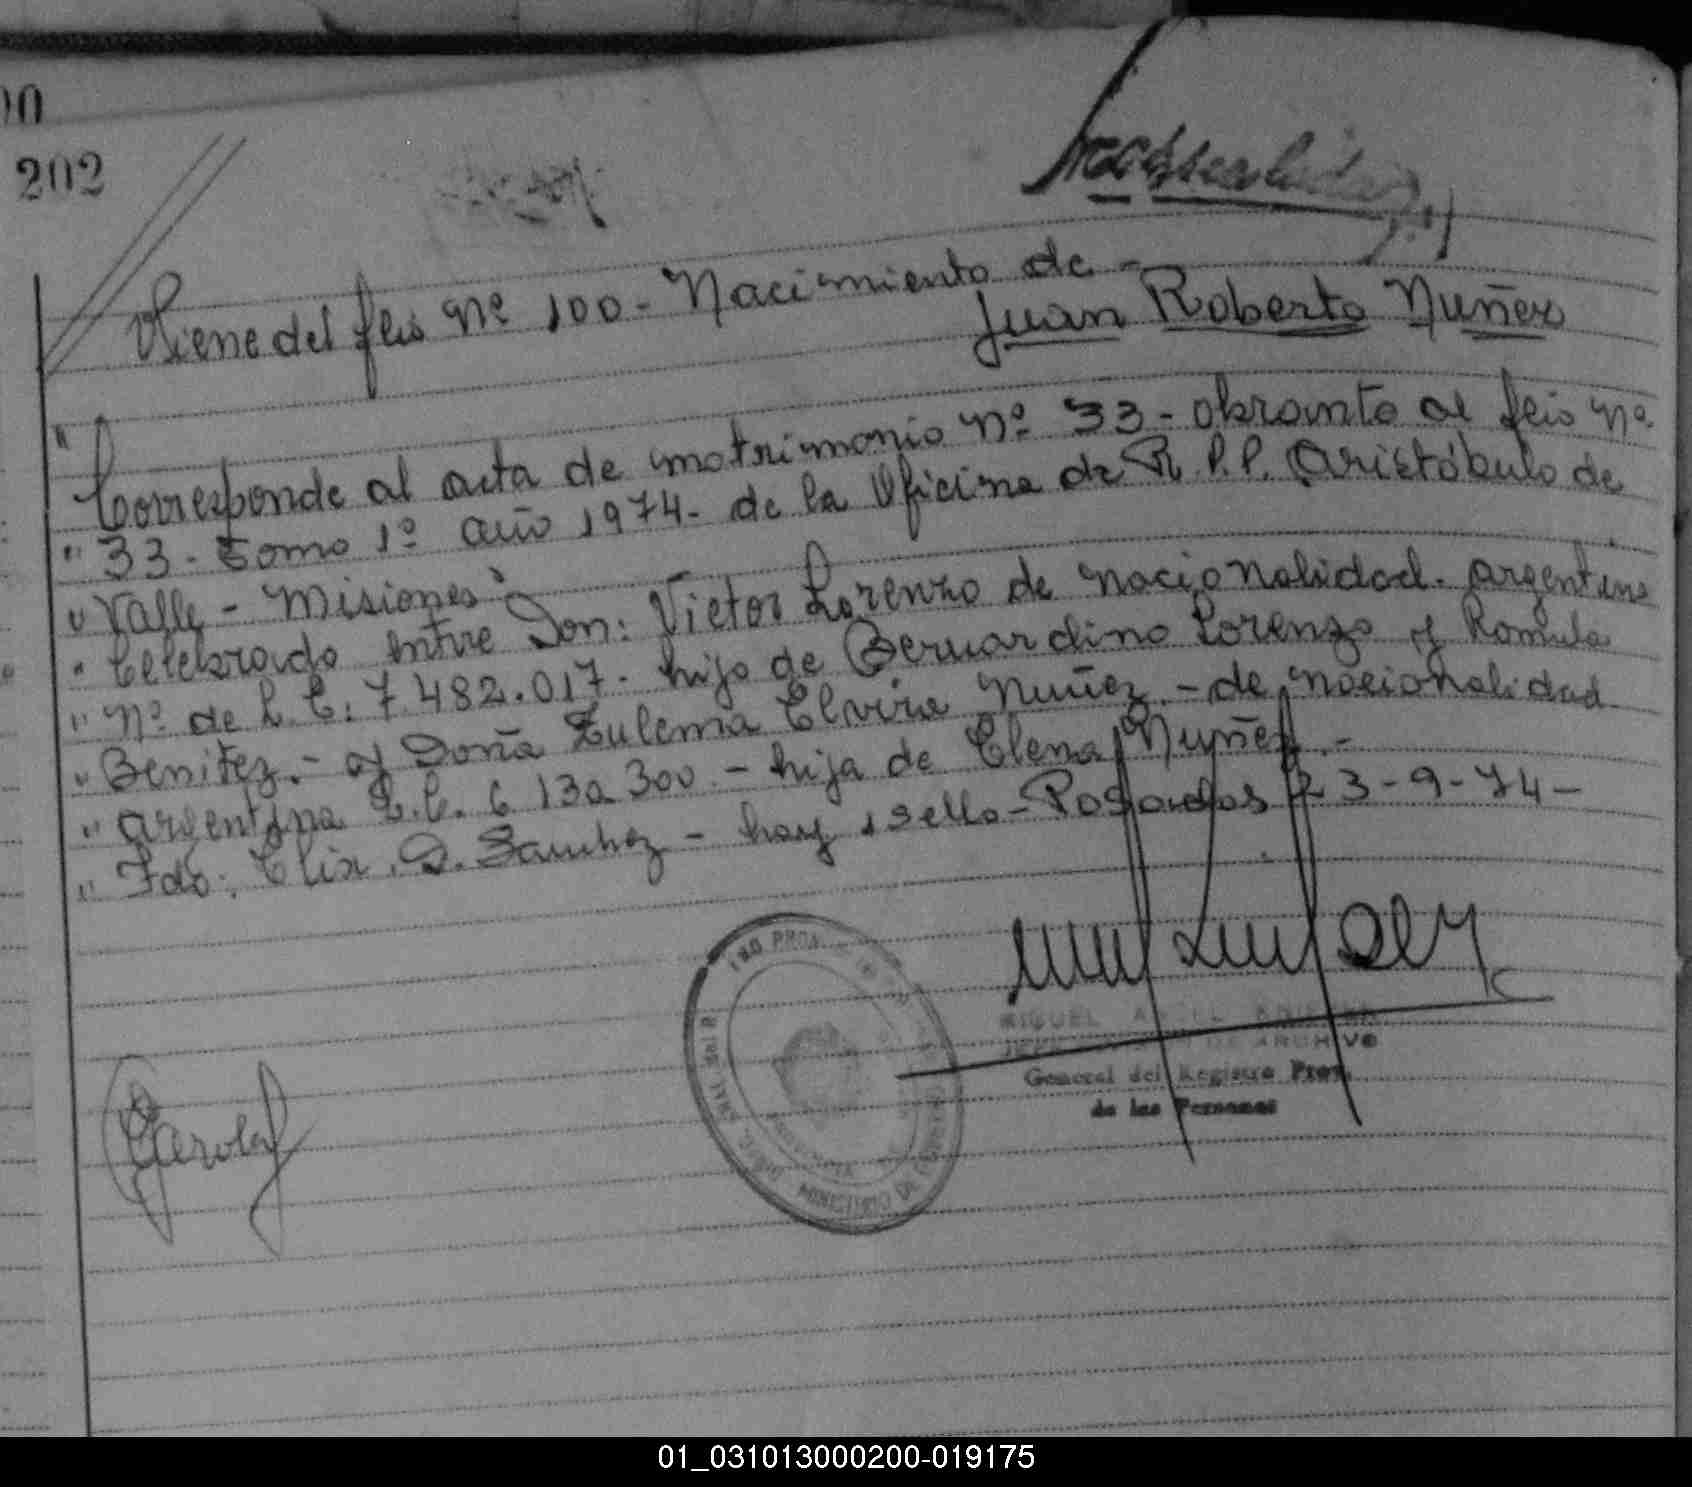 202
Viene del feis Nº 100 - Nacimiento de -
Juan Roberto Nuñez
" Corresponde al acta de matrimonio Nº 33 - obrante al feis Nº
" 33 - tomo 1º año 1974 - de la Oficina de R.P.P. Aristóbulo de
" Valle - Misiones "
" Celebrado entre Don: Victor Lorenzo de nacionalidad argentina
" Nº de L.E. 7.482.017 - hijo de Bernardino Lorenzo y Romula
" Benitez - y Doña Zulema Elvira Nuñez - de nacionalidad
" argentina L.C. 6 130 300 - hija de Elena Nuñez -
" Fdo: D. Sanchez - hay 1 sello - Posadas 23-9-74 -
MIGUEL
DE ARCHIVO
General del Registro Prov.
de las Personas
MINISTERIO DE GOBIERNO
01_031013000200-019175